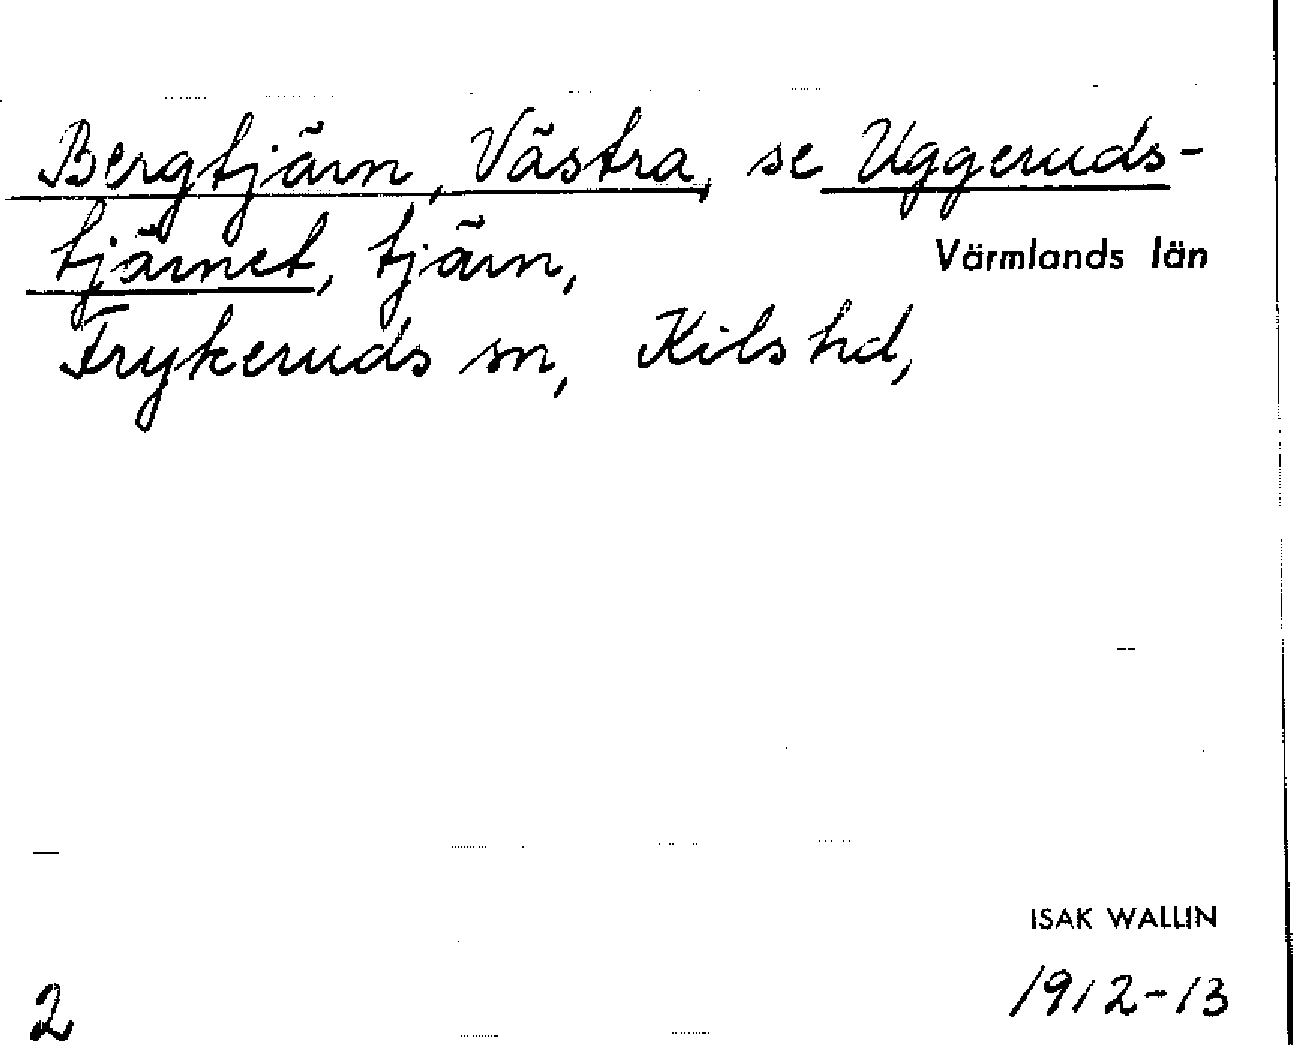 Bergtjärn, Västra, se Uggeruds-
tjärnet, tjärn,
Värmlands län
Frykeruds sn, Kils hd,
ISAK WALLIN
1912-13
2